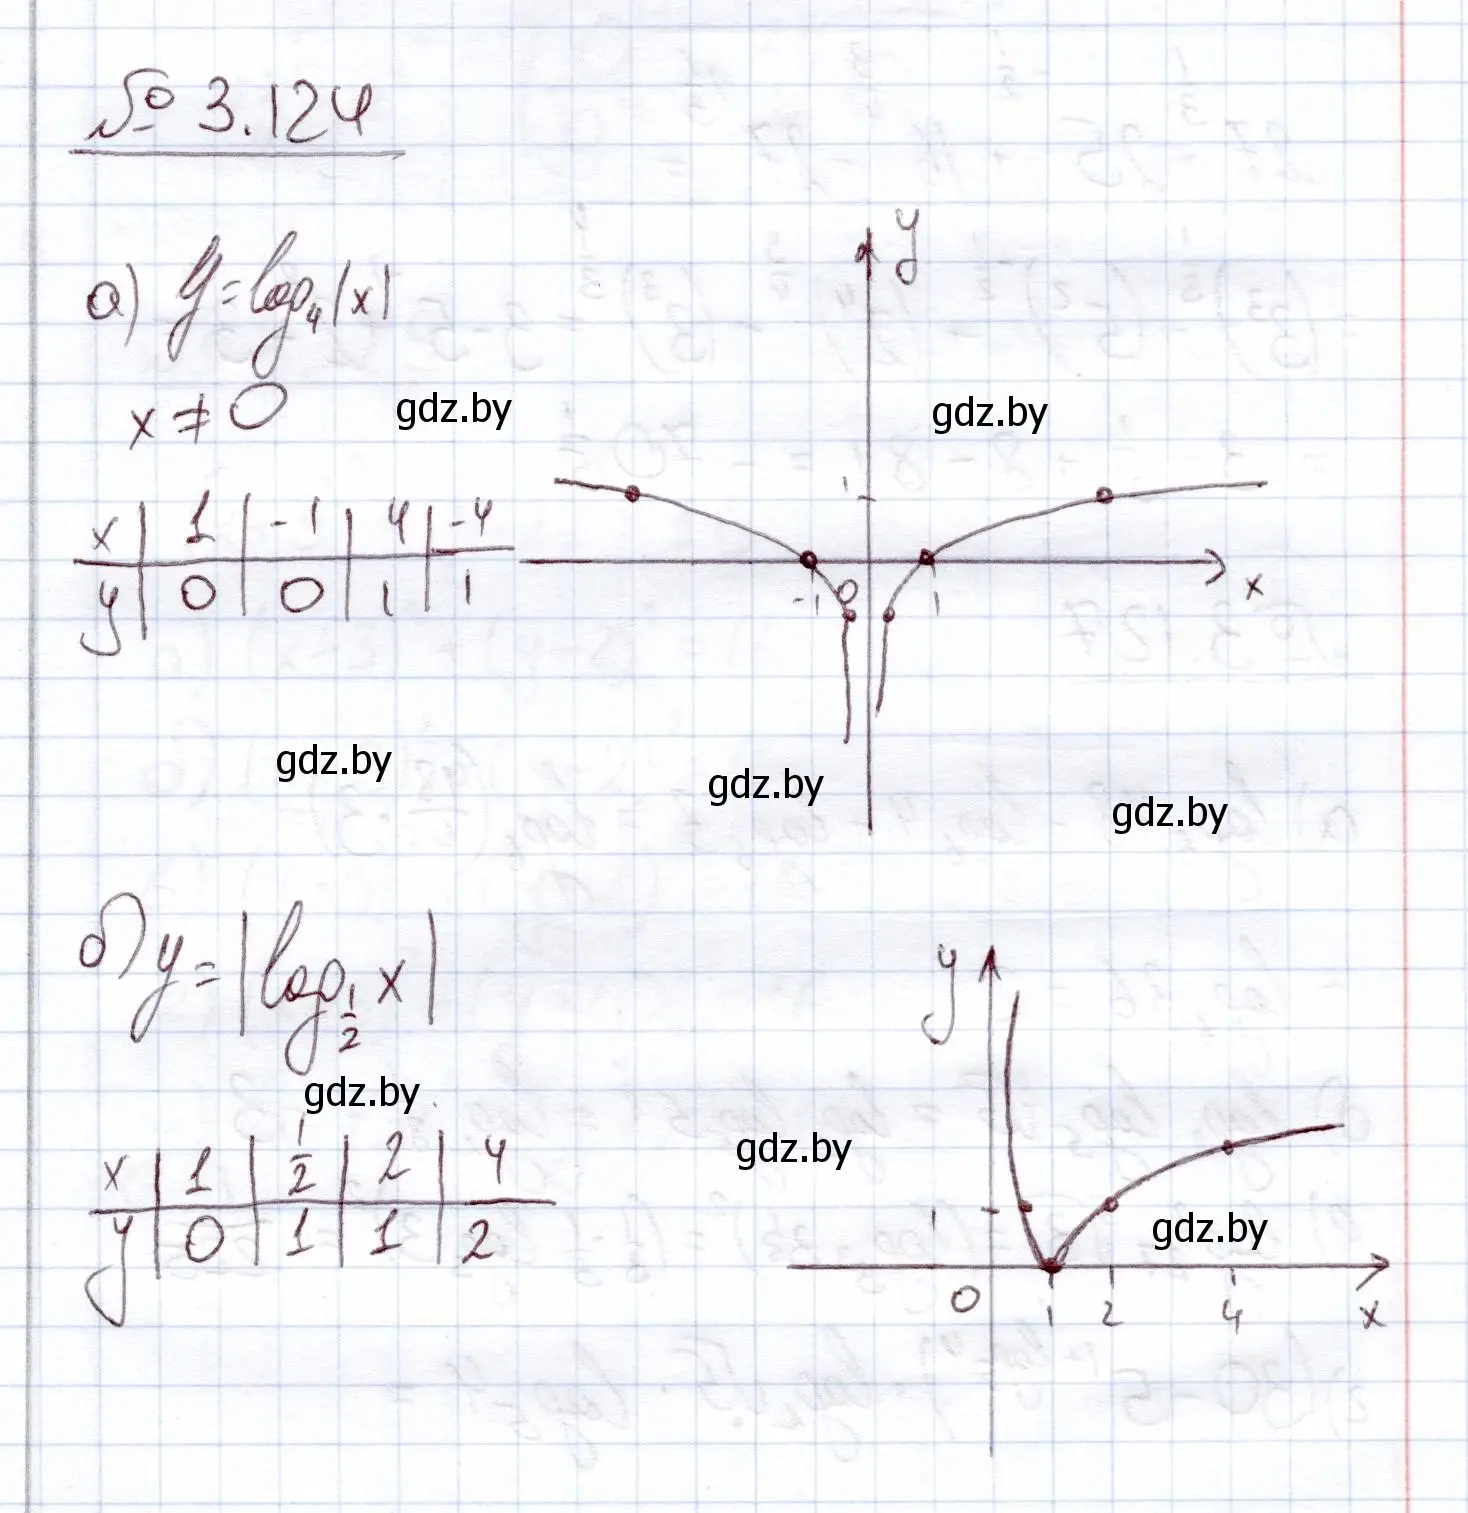 № 3.124
а) y = log₄|x|
x ≠ 0
gdz.by gdz.by
x | 1 | -1 | 4 | -4
y | 0 | 0 | 1 | 1
y
1
-1 0 1 x
gdz.by gdz.by gdz.by
б) y = |log_{1/2} x|
gdz.by gdz.by
x | 1 | 1/2 | 2 | 4
y | 0 | 1 | 1 | 2
y
1
gdz.by
0 1 2 4 x